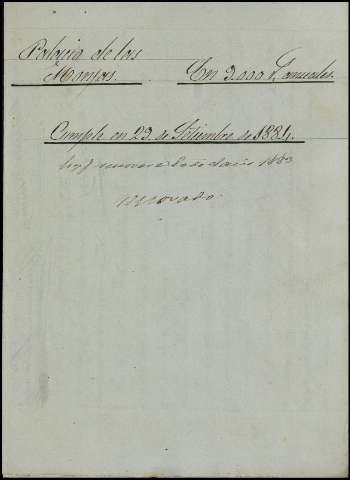 Palacio de los
Monjas. En 3.000 P. anuales.
Cumple en 29 de Setiembre de 1884.
1883
renovado.